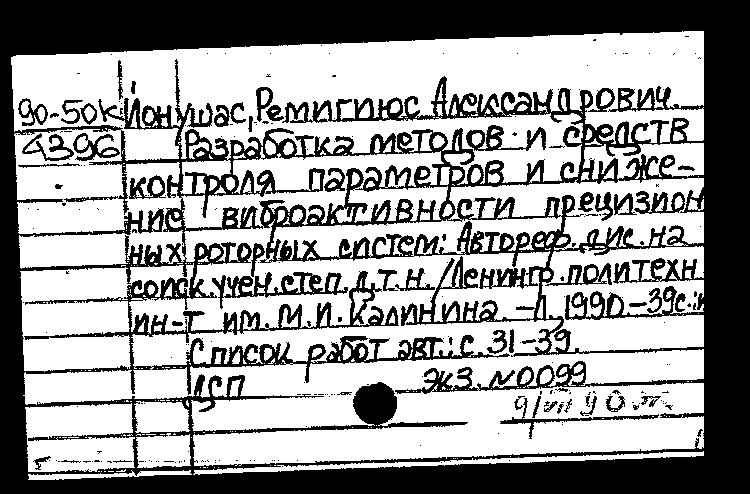 90-50к Йонушас, Ремигиюс Александрович.
4396 Разработка методов и средств
контроля параметров и сниже-
ние виброактивности прецизион
ных роторных систем: Автореф. дис. на
соиск. учен. степ. д.т.н. / Ленингр. политехн
ин-т им. М.И. Калинина. – Л., 1990. – 39с.:и
Список работ авт.: с. 31-39.
ДСП Экз. №0099
9/VII 90